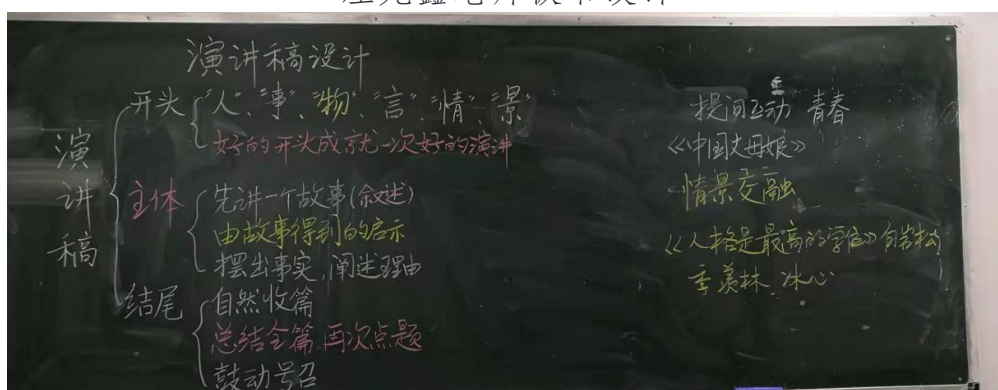 演讲稿设计
演讲稿
开头 "人"、"事"、"物"、"言"、"情"、"景"
好的开头成就一次好的演讲
主体 先讲一个故事(叙述)
由故事得到的启示
摆出事实,阐述理由
结尾 自然收篇
总结全篇,再次点题
鼓动号召
提问互动 青春
《中国丈母娘》
情景交融
《人格是最高的学位》白岩松
季羡林 冰心